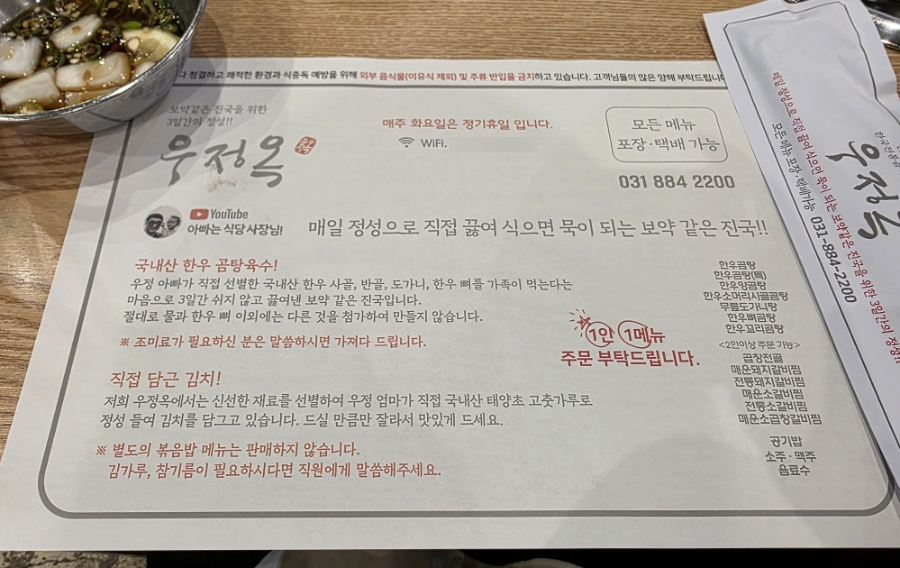 다 청결하고 쾌적한 환경과 식중독 예방을 위해 외부 음식물(이유식 제외) 및 주류 반입을 금지하고 있습니다. 고객님들의 많은 양해 부탁드립니다
보약같은 진국을 위한
3일간의 정성!!
우정옥
매주 화요일은 정기휴일 입니다.
WiFi.
모든 메뉴
포장·택배 가능
031 884 2200
YouTube
아빠는 식당 사장님!
매일 정성으로 직접 끓여 식으면 묵이 되는 보약 같은 진국!!
국내산 한우 곰탕육수!
우정 아빠가 직접 선별한 국내산 한우 사골, 반골, 도가니, 한우 뼈를 가족이 먹는다는
마음으로 3일간 쉬지 않고 끓여낸 보약 같은 진국입니다.
절대로 물과 한우 뼈 이외에는 다른 것을 첨가하여 만들지 않습니다.
※ 조미료가 필요하신 분은 말씀하시면 가져다 드립니다.
직접 담근 김치!
저희 우정옥에서는 신선한 재료를 선별하여 우정 엄마가 직접 국내산 태양초 고춧가루로
정성 들여 김치를 담그고 있습니다. 드실 만큼만 잘라서 맛있게 드세요.
※ 별도의 볶음밥 메뉴는 판매하지 않습니다.
김가루, 참기름이 필요하시다면 직원에게 말씀해주세요.
1인 1메뉴
주문 부탁드립니다.
한우곰탕
한우곰탕(특)
한우양곰탕
한우소머리사골곰탕
무릎도가니탕
한우뼈곰탕
한우꼬리곰탕
<2인이상 주문 가능>
곱창전골
매운돼지갈비찜
전통돼지갈비찜
매운소갈비찜
전통소갈비찜
매운소곱창갈비찜
공기밥
소주·맥주
음료수
우정옥
매일 정성으로 직접 끓여 식으면 묵이 되는 보약같은 진국을 위한 3일간의 정성!!
모든 메뉴 포장·택배가능 031-884-2200